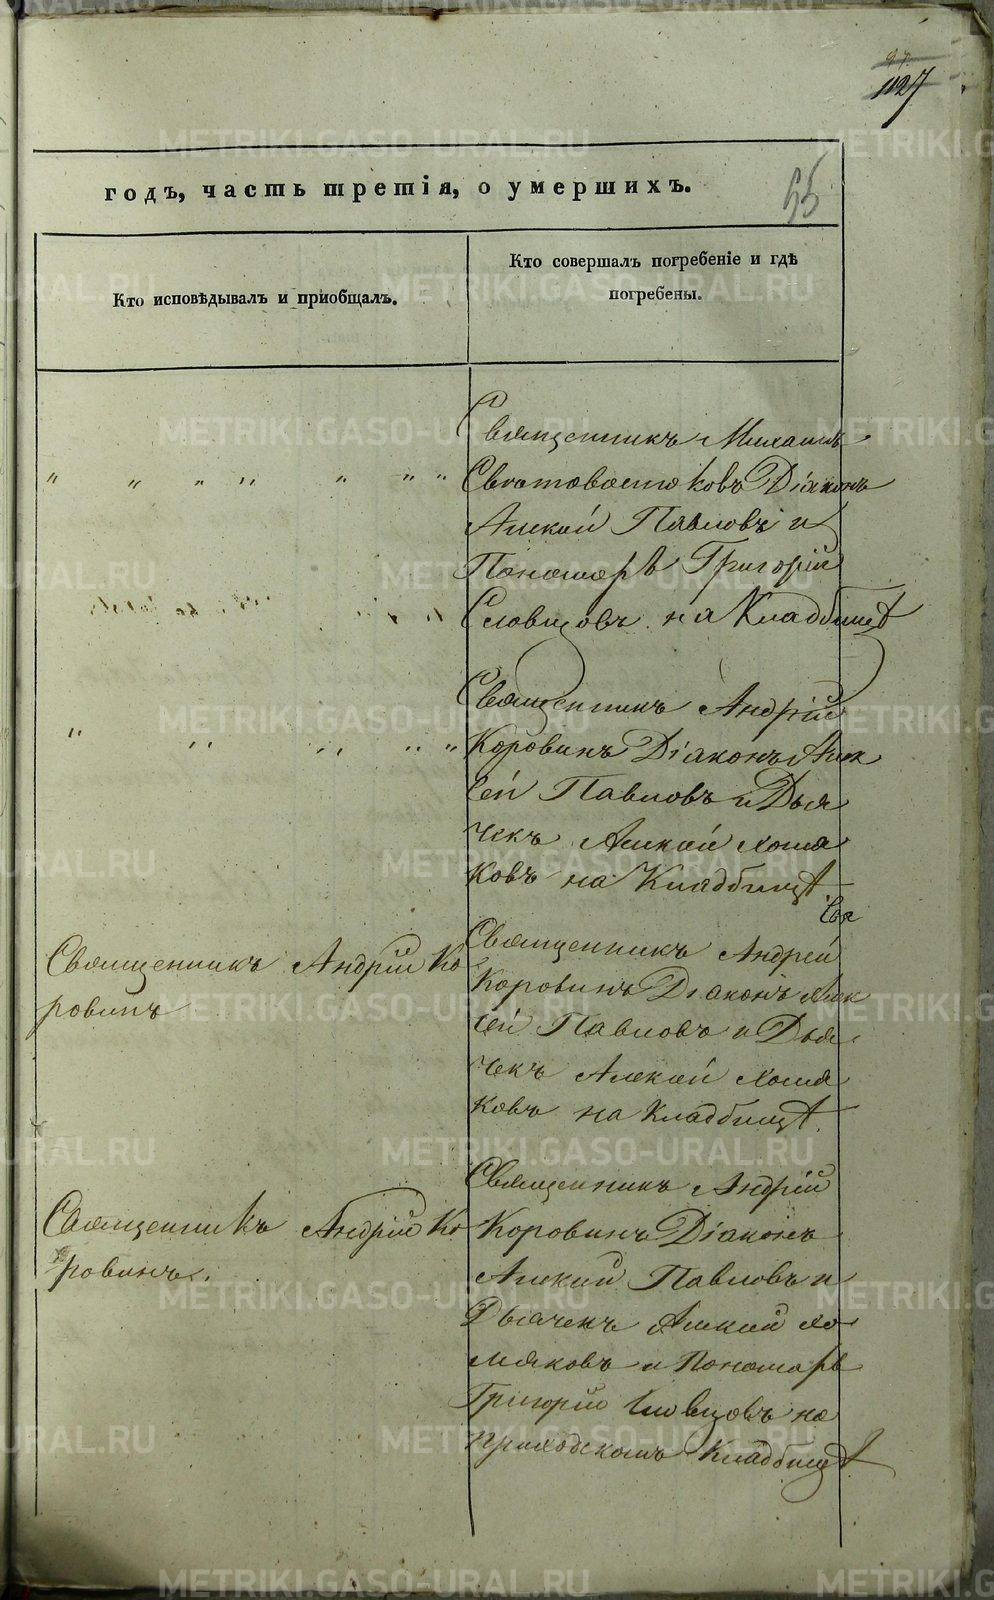 127
годъ, часть третія, о умершихъ.
55
Кто исповѣдывалъ и приобщалъ.
Кто совершалъ погребеніе и гдѣ
погребены.
Священникъ Михаилъ
" " " " " " " Свѣтовостоковъ Діаконъ
Алексѣй Павловъ и
Пономарь Григорій
Словцовъ на Кладбищѣ
Священникъ Андрій
" " " " " Коровинъ Діаконъ Алек
сѣй Павловъ и Дья
чекъ Алексѣй Хомя
ковъ на Кладбищѣ
Свя
Священникъ Андрей
Священникъ Андрій Ко
Коровинъ Діаконъ Алек
ровинъ
сѣй Павловъ и Дья
чекъ Алексѣй Хомя
ковъ на Кладбищѣ.
Священникъ Андрій
Священникъ Андрій Ко
Коровинъ Діаконъ
ровинъ.
Алексѣй Павловъ и
Дьячекъ Алексѣй Хо
мяковъ и Пономарь
Григорій Словцовъ на
приходскомъ Кладбищѣ
METRIKI.GASO-URAL.RU